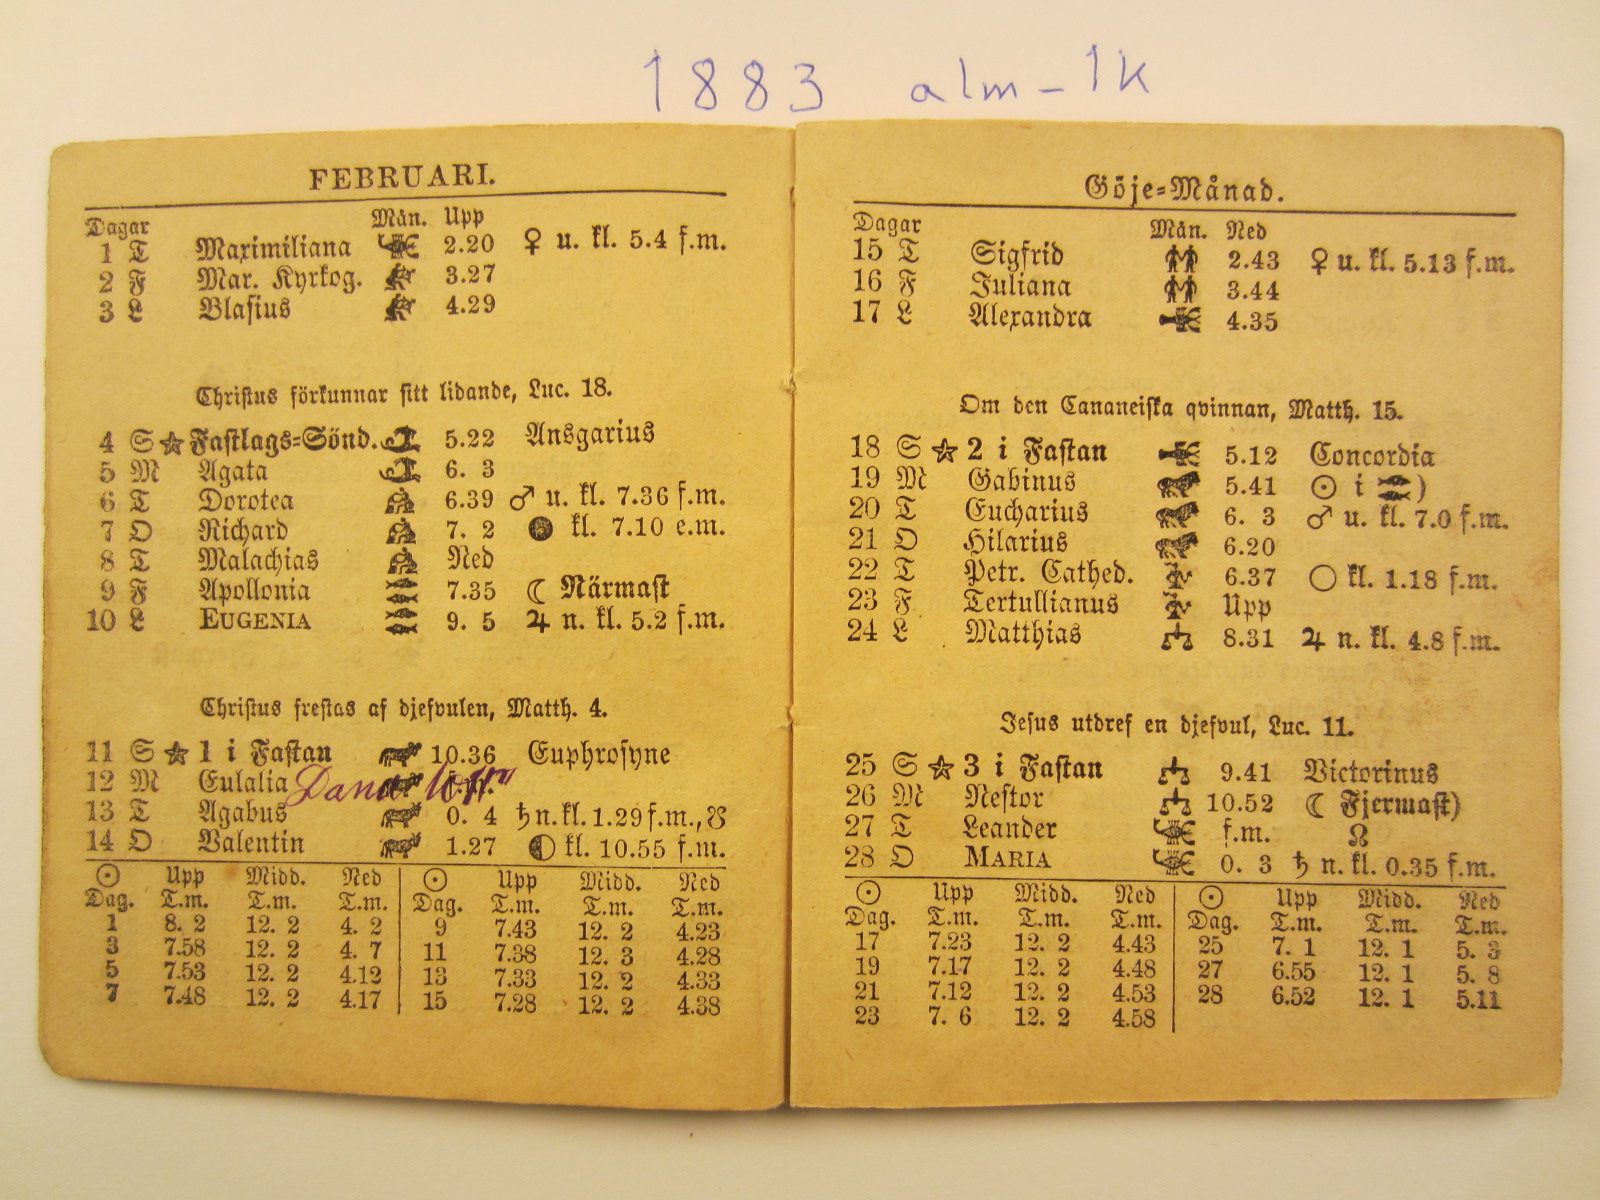 1883 alm-1k
FEBRUARI.
Dagar Mån. Upp
1 T Maximiliana 2.20 ♀ u. kl. 5.4 f.m.
2 F Mar. Kyrkog. 3.27
3 L Blasius 4.29
Christus förkunnar sitt lidande, Luc. 18.
4 S ☆ Fastlags=Sönd. 5.22 Ansgarius
5 M Agata 6. 3
6 T Dorotea 6.39 ♂ u. kl. 7.36 f.m.
7 O Richard 7. 2 ● kl. 7.10 e.m.
8 T Malachias Ned
9 F Apollonia 7.35 ☾ Närmast
10 L EUGENIA 9. 5 ♃ n. kl. 5.2 f.m.
Christus frestas af djefvulen, Matth. 4.
11 S ☆ 1 i Fastan 10.36 Euphrosyne
12 M Eulalia
13 T Agabus 0. 4 ♄ n. kl. 1.29 f.m., ☋
14 O Valentin 1.27 ◐ kl. 10.55 f.m.
☉ Upp Midd. Ned ☉ Upp Midd. Ned
Dag. T.m. T.m. T.m. Dag. T.m. T.m. T.m.
1 8. 2 12. 2 4. 2 9 7.43 12. 2 4.23
3 7.58 12. 2 4. 7 11 7.38 12. 3 4.28
5 7.53 12. 2 4.12 13 7.33 12. 2 4.33
7 7.48 12. 2 4.17 15 7.28 12. 2 4.38
Göje=Månad.
Dagar Mån. Ned
15 T Sigfrid 2.43 ♀ u. kl. 5.13 f.m.
16 F Juliana 3.44
17 L Alexandra 4.35
Om den Cananeiska qvinnan, Matth. 15.
18 S ☆ 2 i Fastan 5.12 Concordia
19 M Gabinus 5.41 ☉ i ♓)
20 T Eucharius 6. 3 ♂ u. kl. 7.0 f.m.
21 O Hilarius 6.20
22 T Petr. Cathed. 6.37 ○ kl. 1.18 f.m.
23 F Tertullianus Upp
24 L Matthias 8.31 ♃ n. kl. 4.8 f.m.
Jesus utdref en djefvul, Luc. 11.
25 S ☆ 3 i Fastan 9.41 Victorinus
26 M Nestor 10.52 ☾ Fjermast)
27 T Leander f.m. ☊
28 O MARIA 0. 3 ♄ n. kl. 0.35 f.m.
☉ Upp Midd. Ned ☉ Upp Midd. Ned
Dag. T.m. T.m. T.m. Dag. T.m. T.m. T.m.
17 7.23 12. 2 4.43 25 7. 1 12. 1 5. 3
19 7.17 12. 2 4.48 27 6.55 12. 1 5. 8
21 7.12 12. 2 4.53 28 6.52 12. 1 5.11
23 7. 6 12. 2 4.58